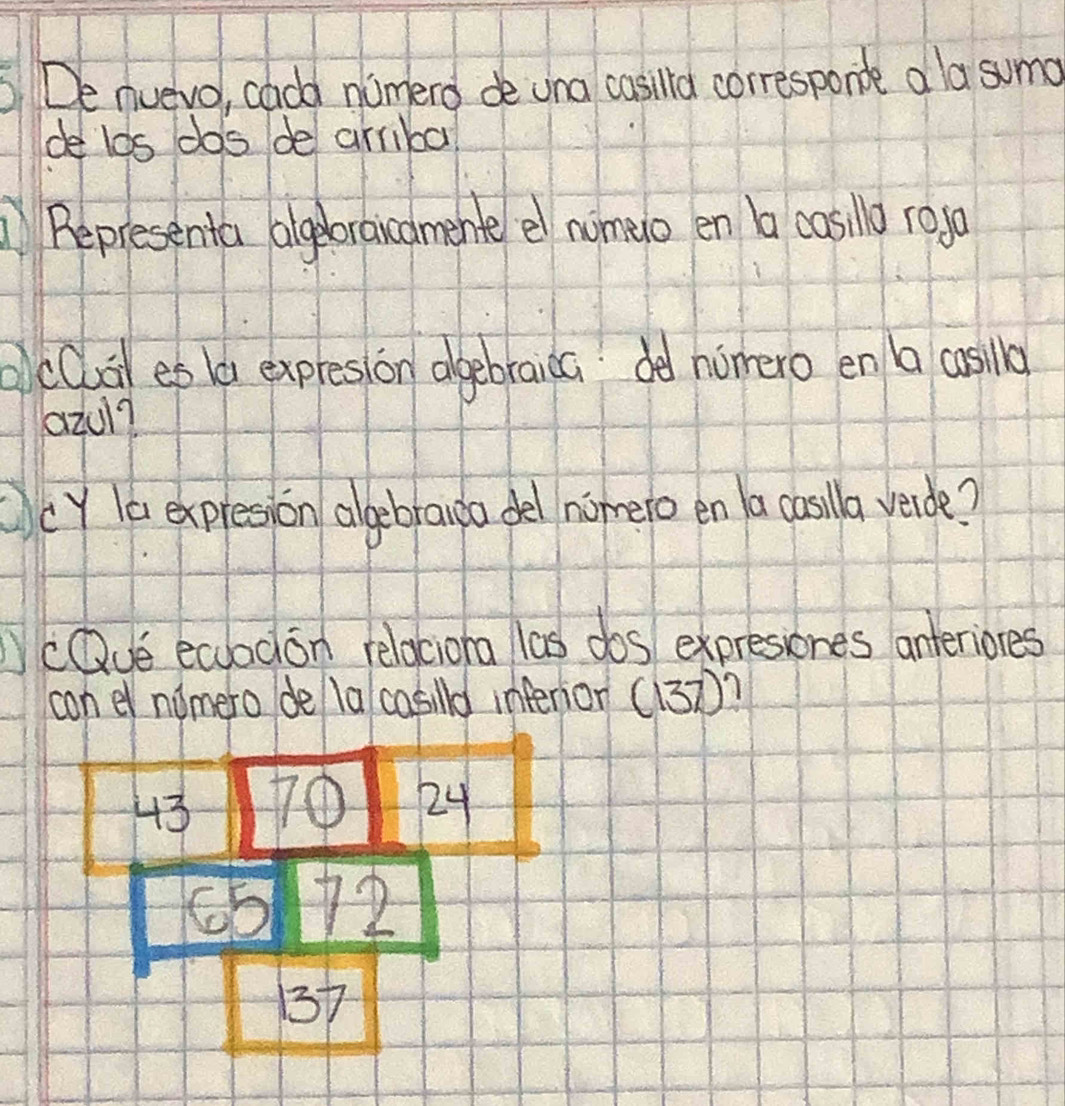 5 De nuevo, cada número de una casilla corresponde a la suma
de los dos de arriba
Representa algebraicamente el número en la casilla roja
¿Cuál es la expresión algebraica del número en la casilla
azul?
¿Y la expresión algebraica del número en la casilla verde?
¿Qué ecuación relaciona las dos expresiones anteriores
con el número de la casilla inferior (137)?
43 70 24
65 72
137